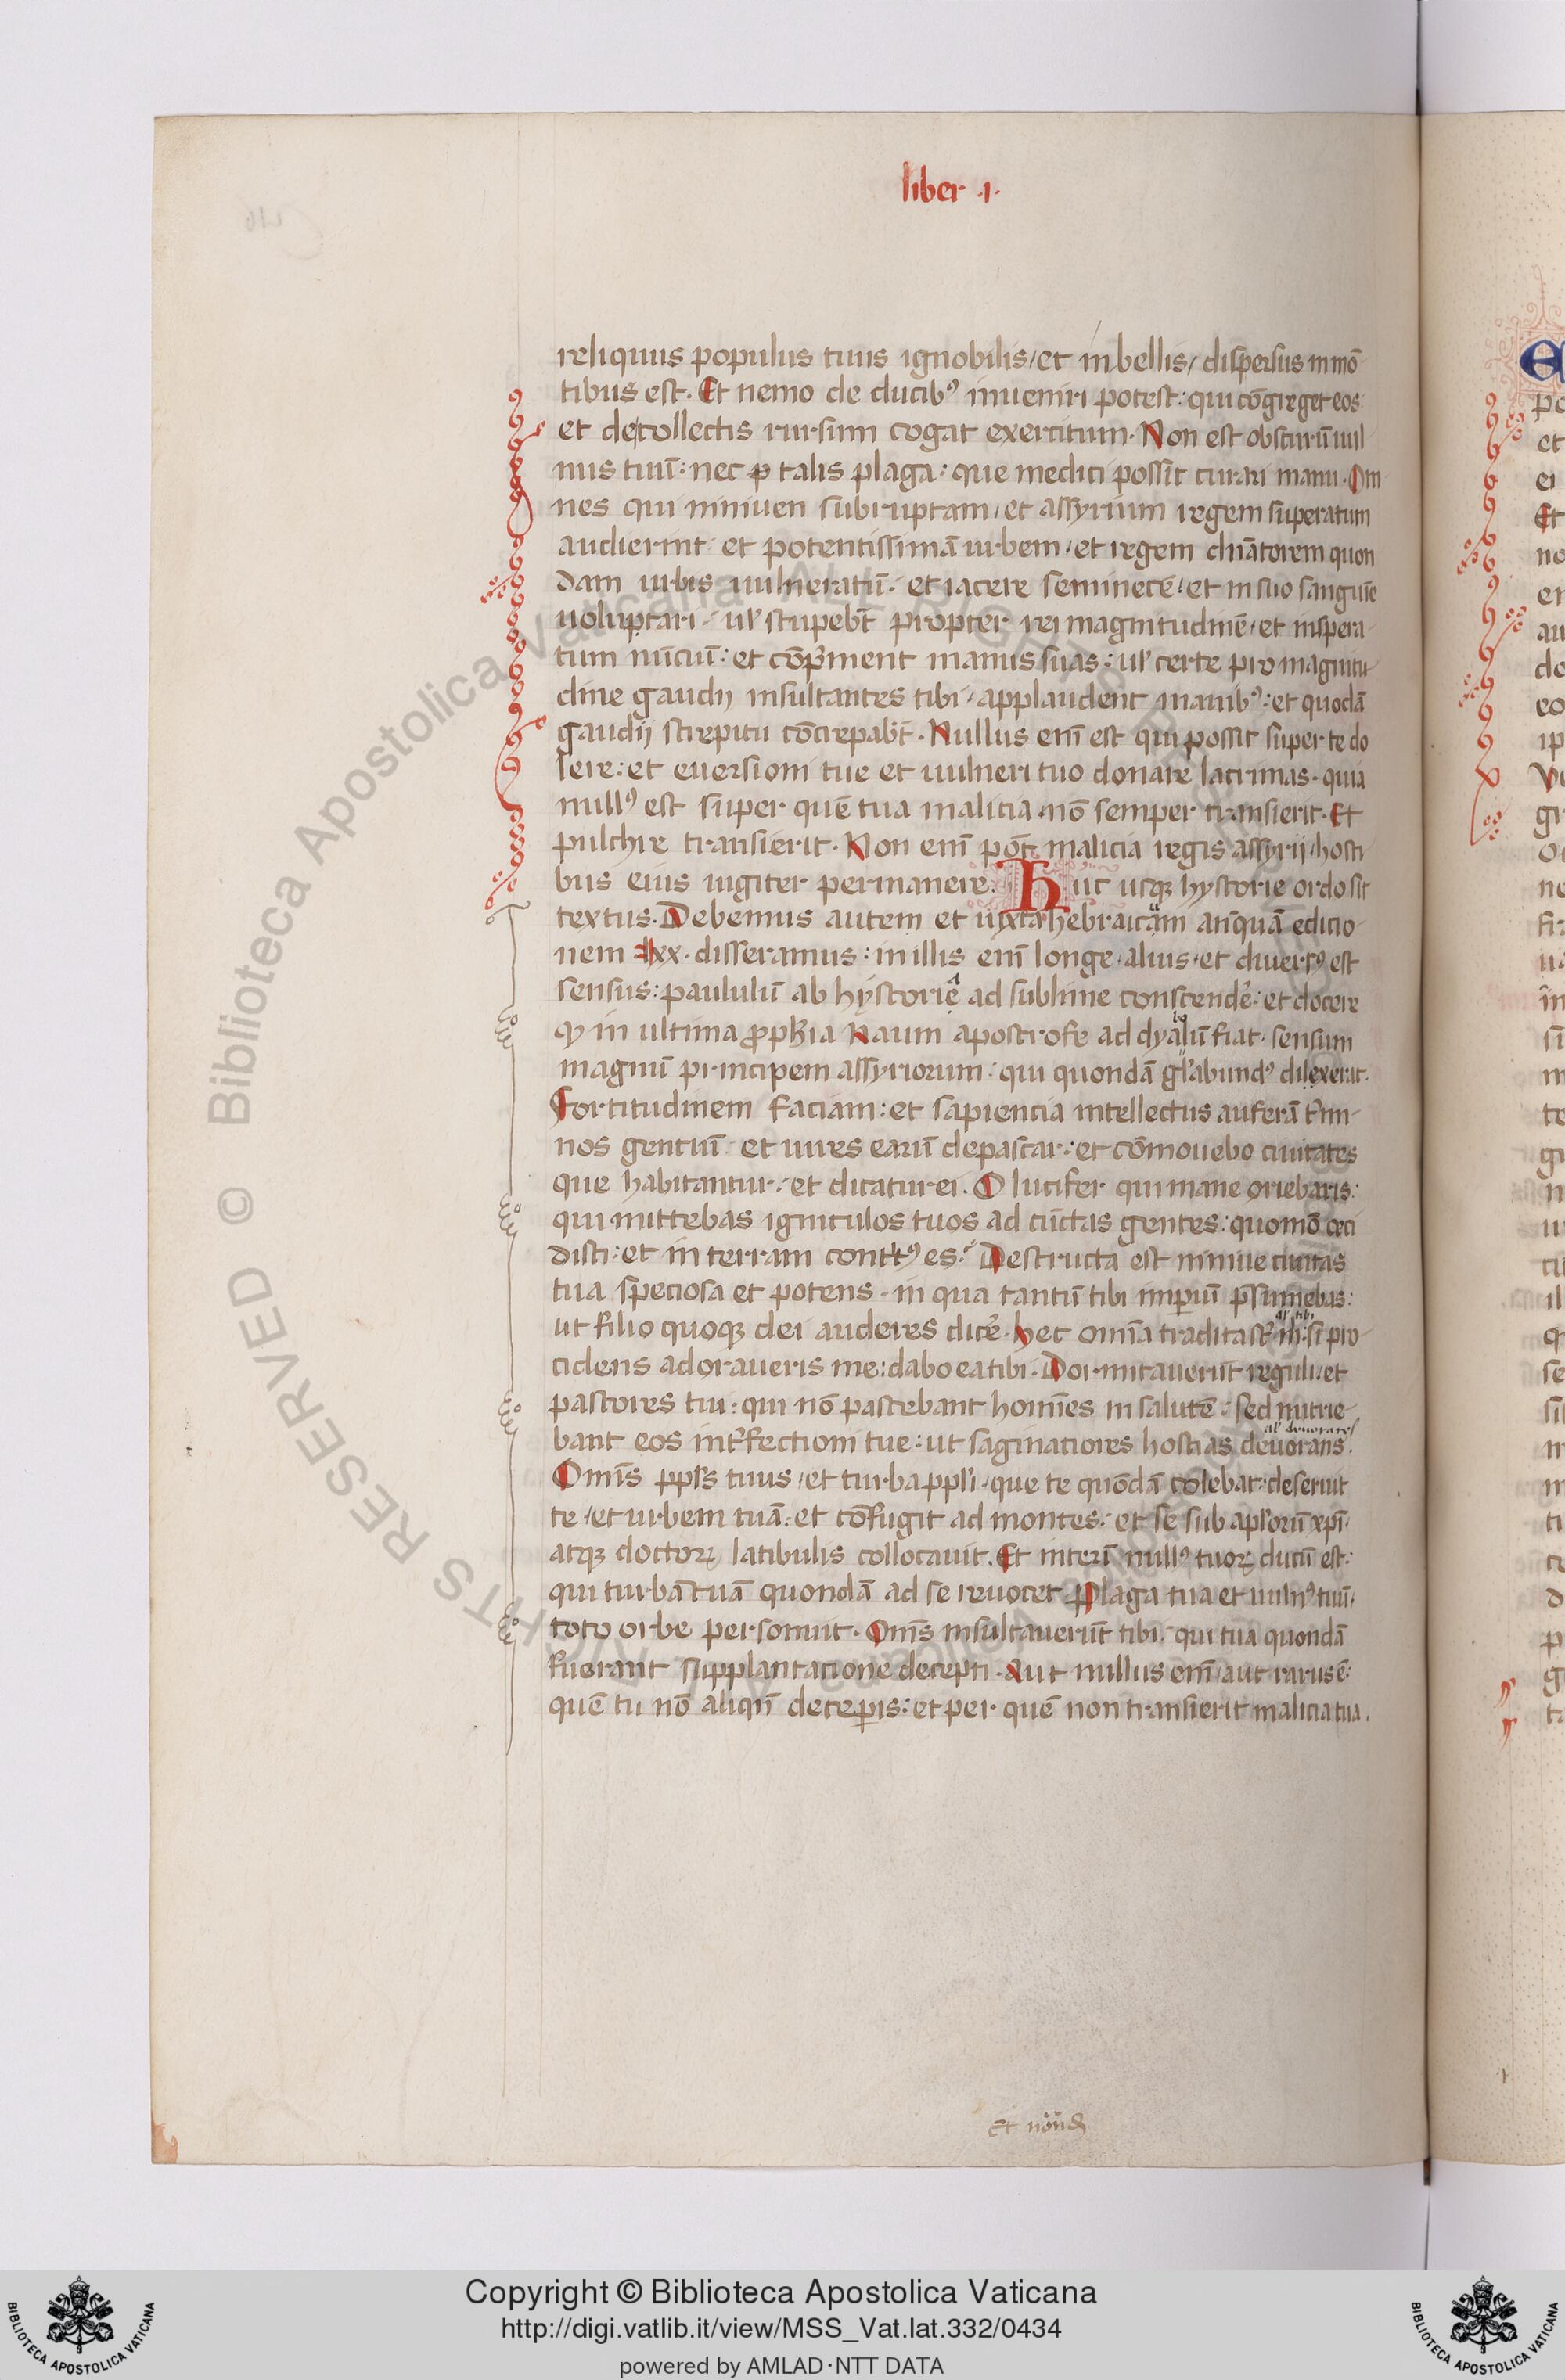 liber .i.
reliquus populus tuus ignobilis / et inbellis / dispersus in mō
tibus est. Et nemo de ducibꝰ inueniri potest: qui cōgreget eos
et de collectis rursum cogat exercitum. Non est obscurū uul
nus tuū: nec ꝑ talis plaga: que medici possit curari manu. Om
nes qui niniuen subruptam / et assyrium regem superatum
audierint et potentissimā urbem / et regem dn̄atorem quon
dam urbis uulneratū et iacere seminecē / et in suo sanguīe
uoluptari ul' stupebt̄ propter rei magnitudinē / et inspera
tum nūciū: et cōp̄ment manus suas: ul' certe pro magnitu
dine gaudij insultantes tibi / applaudent manibꝰ: et quodā
gaudij strepitu cōcrepabt̄. Nullus eni᷄ est qui possit super te do
lere: et euersioni tue et uulneri tuo donare lacrimas. quia
nullꝰ est super quē tua malicia nō semper transierit. Et
pulchre transierit. Non eni᷄ pōt malicia regis assyrij / hosti
bus eius iugiter permanere. Huc usqꝫ hystorie ordo sit
textus. Debemus autem et iuxta hebraicam anq̄uā edicio
nem lxx. disseramus: in illis eni᷄ longe alius et diuersꝰ est
sensus: paululū ab hystorie ad sublime conscende᷄: et docere
ꝙ in ultima ꝓph̄ia Naum apostrofe ad dyabolū fiat. sensum
magnū principem assyriorum: qui quondā gl'abundꝰ dixerat.
Fortitudinem faciam: et sapiencia intellectus auferā t᷄mi
nos gentiū et uires earū depascar: et cōmouebo ciuitates
que habitantur: et dicatur ei. O lucifer qui mane oriebaris:
qui mittebas igniculos tuos ad cūctas gentes: quomō ceci
disti: et in terram contt̄ꝰ es? Destructa est niniue ciuitas
tua speciosa et potens in qua tantū tibi imꝑiū p̄sumebas:
al' tibi
ut filio quoqꝫ dei auderes dice᷄. Hec omīa tradita st̄ m̄: si pro
cidens adoraueris me: dabo ea tibi. Dormitauerūt reguli et
pastores tui: qui nō pascebant homīes in salutē: sed nutrie
al' deuorares
bant eos int᷄fectioni tue: ut saginatiores hostias deuorans.
Om̄is ppl's tuus / et turba ppl'i / que te quōdā colebat: deseruit
te / et urbem tuā: et cōfugit ad montes: et se sub apl'orū xp̄i
atqꝫ doctoꝝ latibulis collocauit. Et interī nullꝰ tuoꝝ ducū est:
qui turbā tuā quondā ad se reuocet Plaga tua et uulnꝰ tuū
toto orbe personuit. Om̄s insultauerūt tibi: qui tua quondā
fuerant supplantacione decepti. Aut nullus eni᷄ aut rarus ē:
quē tu nō aliqn̄ deceꝑis: et per quē non transierit malicia tua.
Biblioteca Apostolica Vaticana ALL RIGHTS RESERVED ©
Copyright © Biblioteca Apostolica Vaticana
http://digi.vatlib.it/view/MSS_Vat.lat.332/0434
powered by AMLAD·NTT DATA
BIBLIOTECA APOSTOLICA VATICANA
BIBLIOTECA APOSTOLICA VATICANA